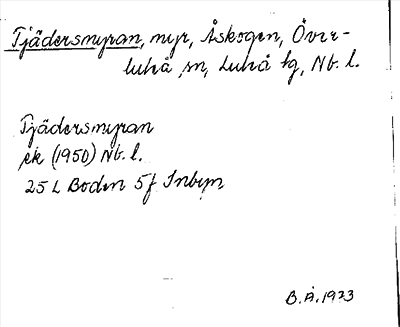 Tjädersmyran, myr, Åskogen, Över-
luleå sn, Luleå tg, Nb. l.
Tjädersmyran
ek (1950) Nb. l.
25 L Boden 5f Inbyn
B. Å. 1973